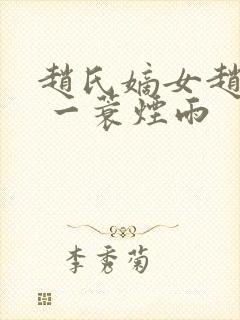 趙氏嫡女趙
一蓑煙雨
李秀菊